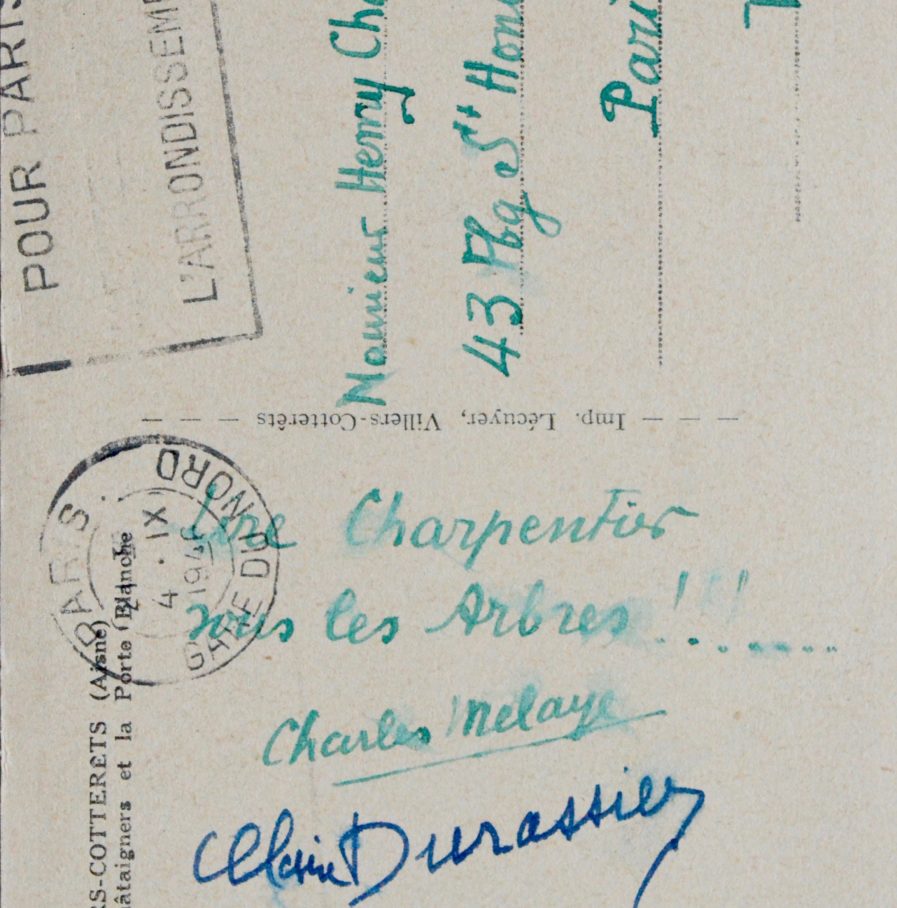 POUR PARIS
L'ARRONDISSEM
Monsieur Henry Cha
43 Fbg St Hon
Pari
— — — Imp. Lécuyer, Villers-Cotterêts — — —
PARIS GARE DU NORD
4 · IX
194
Lire Charpentier
sous les Arbres !!!......
Charles Melaye
Claire Durassier
RS-COTTERETS (Aisne)
hâtaigners et la Porte Blanche